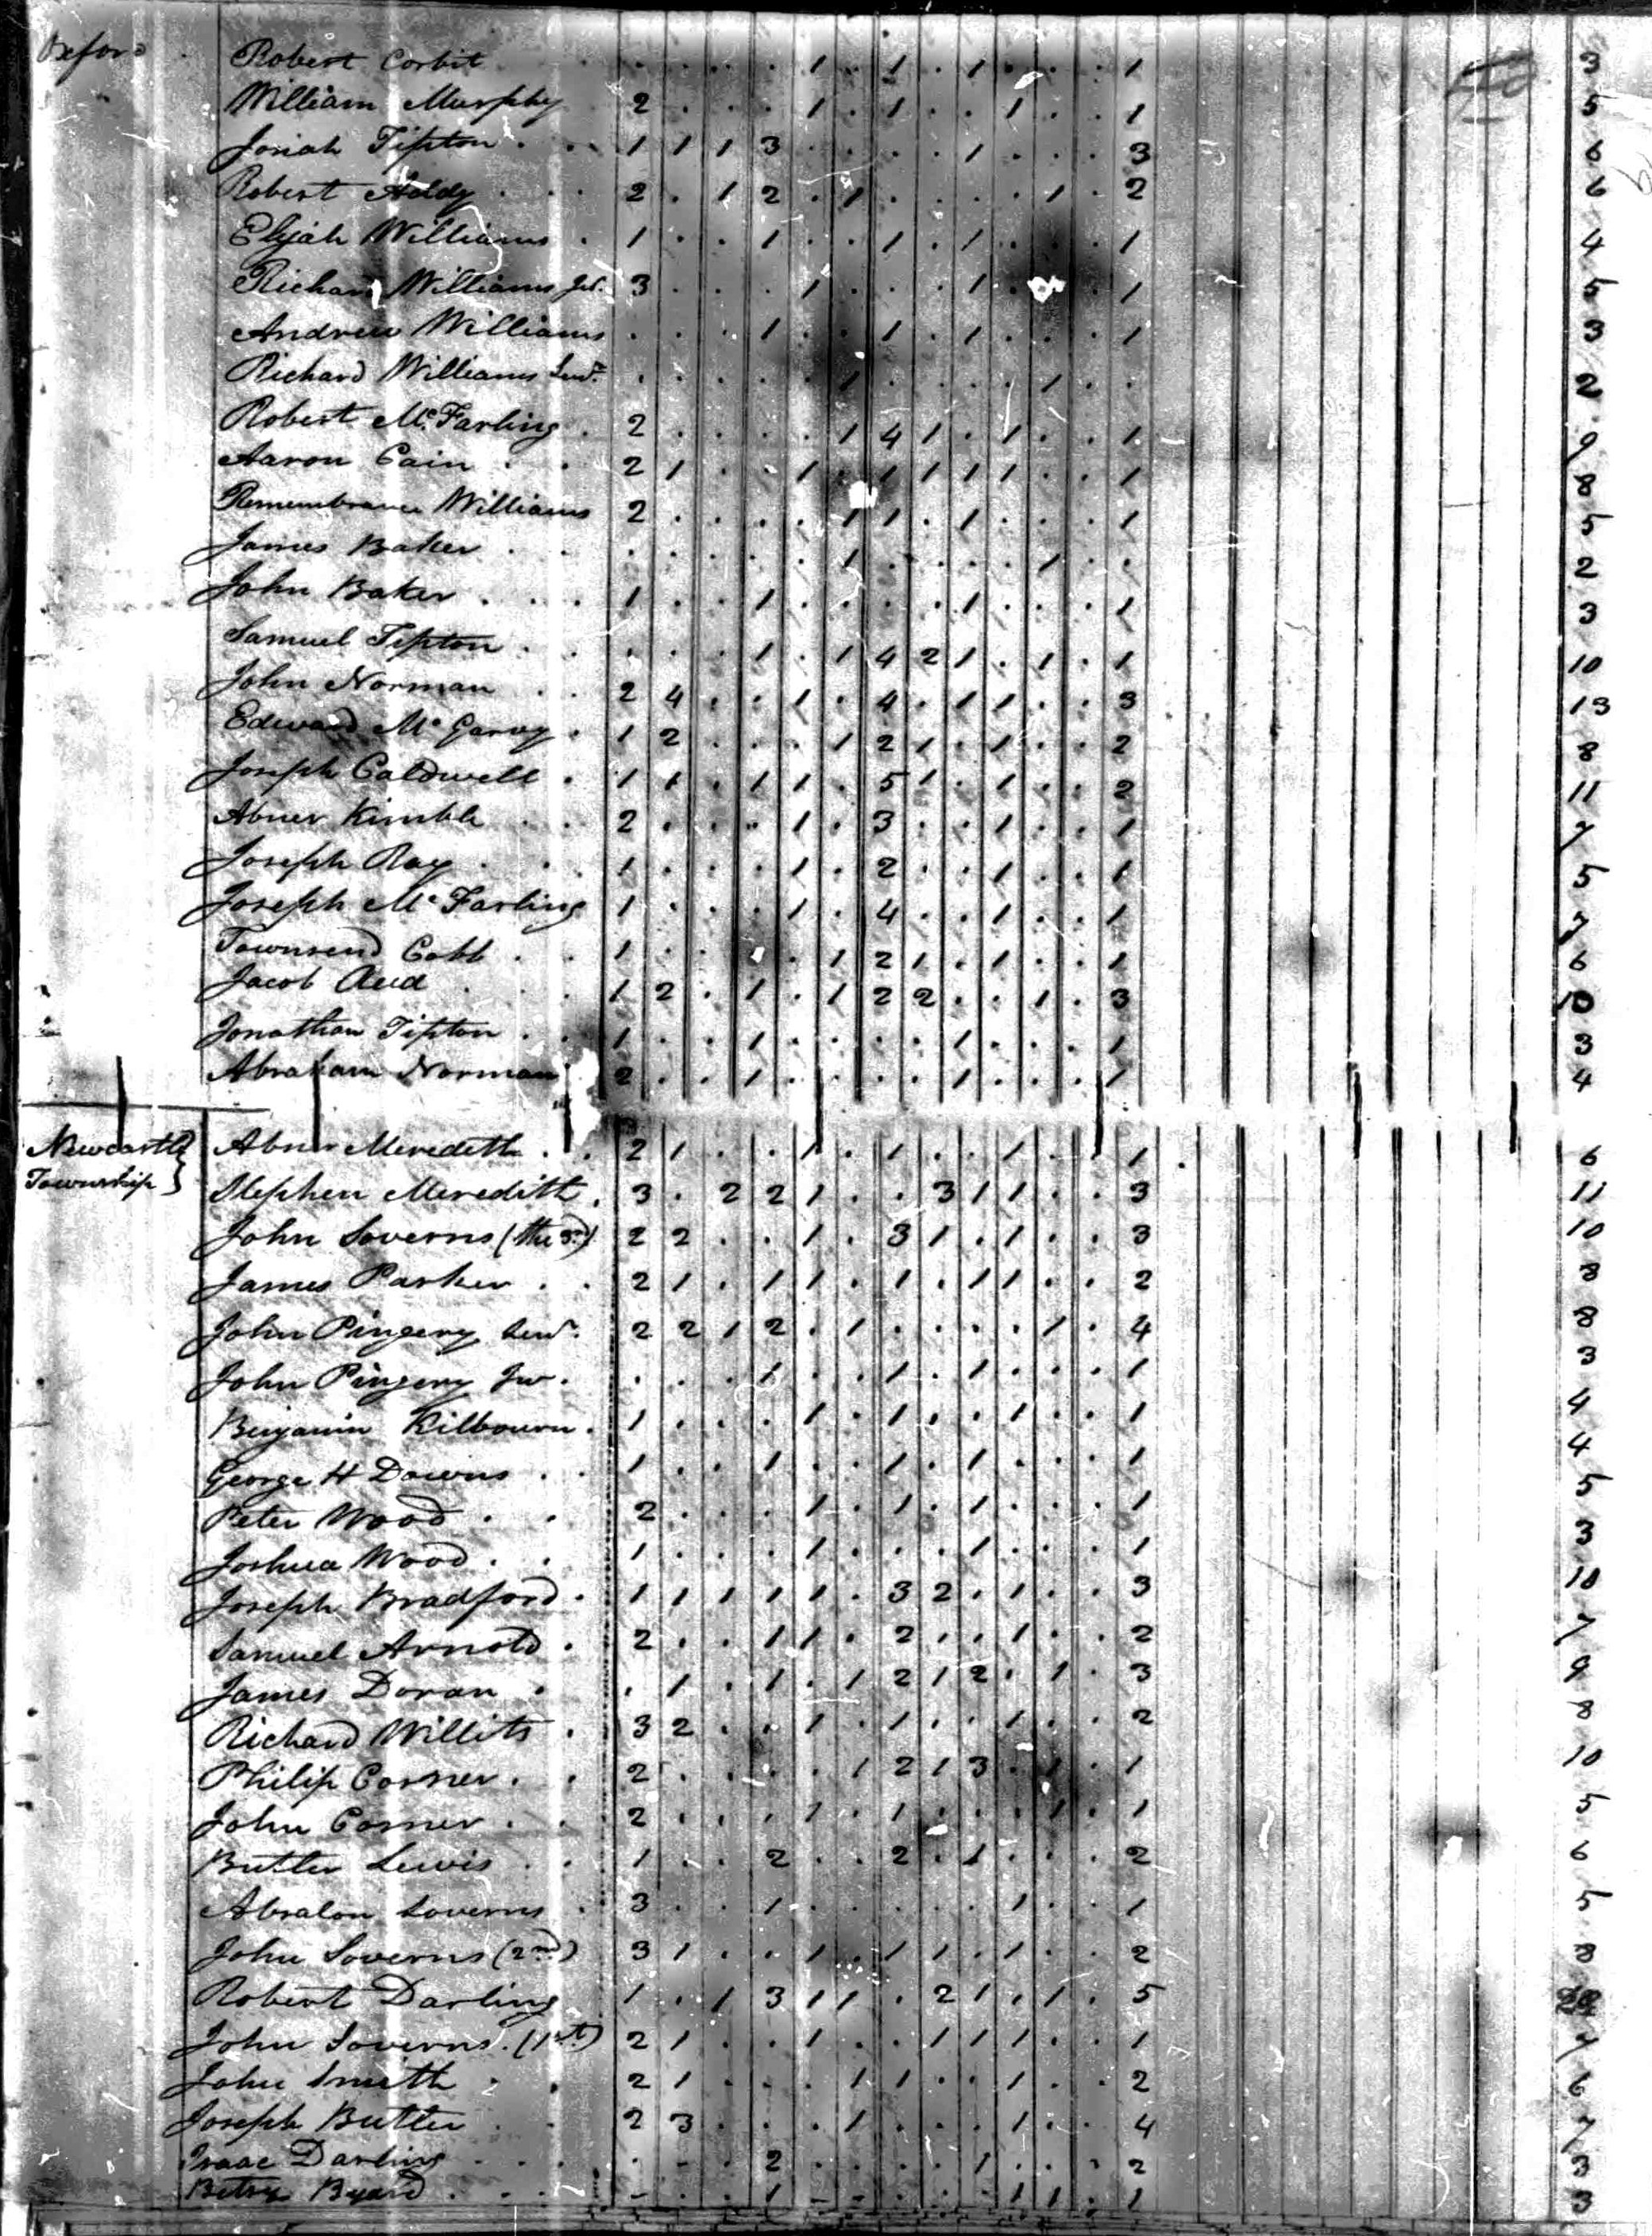 Oxford Robert Corbit . . . . . . . . 1 . 1 . 1 . . . 1 3
William Murphy 2 . . . 1 . 1 . . 1 . . 1 5
Josiah Tipton . . 1 1 1 3 . . . . 1 . . . 3 6
Robert . . . 2 . 1 2 . 1 . . . . 1 . 2 6
Elijah Williams . 1 . . 1 . . 1 . 1 . . . 1 4
Richard Williams Jr. 3 . . . 1 . . . 1 . . . 1 5
Andrew Williams . . . 1 . . 1 . 1 . . . 1 3
Richard Williams Senr. . . . . . 1 . . . . 1 . . 2
Robert McFarling . 2 . . . . 1 4 1 . 1 . . 1 9
Aaron Cain . . 2 1 . . 1 . 1 1 1 1 . . 1 8
Remembrance Williams 2 . . . . 1 1 . 1 . . . 1 5
James Baker . . . . . . . 1 . . . . 1 . . 2
John Baker . . . 1 . . 1 . . . . 1 . . . 1 3
Samuel Tipton . . . . . 1 . 1 4 2 1 . 1 . 1 10
John Norman . . 2 4 . . 1 . 4 . 1 1 . . 3 13
Edward McGarvy . 1 2 . . . 1 2 1 . 1 . . 2 8
Joseph Caldwell . 1 1 . 1 1 . 5 1 . 1 . . 2 11
Abner Kimble . . 2 . . . 1 . 3 . . 1 . . 1 7
Joseph Ray . . . 1 . . . 1 . 2 . . 1 . . 1 5
Joseph McFarling 1 . . . 1 . 4 . . 1 . . 1 7
Townsend Cobb . . 1 . . . . 1 2 1 . 1 . . 1 6
Jacob Aud . . . 1 2 . 1 . 1 2 2 . . 1 . 3 10
Jonathan Tipton . . 1 . . 1 . . . . 1 . . . 1 3
Abraham Norman 2 . . 1 . . . . 1 . . . 1 4
Newcastle Abner Meredith . . 2 1 . . 1 . 1 . . 1 . . 1 6
Township Stephen Meredith . 3 . 2 2 1 . . 3 1 1 . . 3 11
John Soverns (the 3rd) 2 2 . . 1 . 3 1 . 1 . . 3 10
James Parker . . 2 1 . 1 1 . 1 . 1 1 . . 2 8
John Pingery Senr. 2 2 1 2 . 1 . . . . 1 . 4 8
John Pingery Jur. . . . 1 . . 1 . 1 . . . 1 3
Benjamin Kilbourn . 1 . . . 1 . 1 . . 1 . . 1 4
George H Downs . . 1 . . 1 . . 1 . 1 . . . 1 4
Peter Wood . . 2 . . . 1 . 1 . 1 . . . 1 5
Joshua Wood . . 1 . . . 1 . . . 1 . . . 1 3
Joseph Bradford . 1 1 1 1 1 . 3 2 . 1 . . 3 10
Samuel Arnold . 2 . . 1 1 . 2 . . 1 . . 2 7
James Doran . . 1 . 1 . 1 2 1 2 . 1 . 3 9
Richard Willits . 3 2 . . 1 . 1 . . 1 . . 2 8
Philip Corner . . 2 . . . . 1 2 1 3 . 1 . 1 10
John Corner . . 2 . . . 1 . 1 . . . 1 . 1 5
Butler Lewis . . 1 . . 2 . . 2 . 1 . . . 2 6
Absalon Soverns . 3 . . 1 . . . . . 1 . . 1 5
John Soverns (2nd) 3 1 . . 1 . 1 1 . 1 . . 2 8
Robert Darling 1 . 1 3 1 1 . 2 1 . 1 . 5
John Soverns . (1st) 2 1 . . 1 . . 1 1 1 . . 1 7
John Smith . . 2 1 . . . 1 1 . . 1 . . 2 6
Joseph Butler . . 2 3 . . . 1 . . . 1 . . 4 7
Isaac Darling . . . . . . 2 . . . . 1 . . . 2 3
Betsy Byard . . . . . . 1 . . . . . 1 1 . 1 3